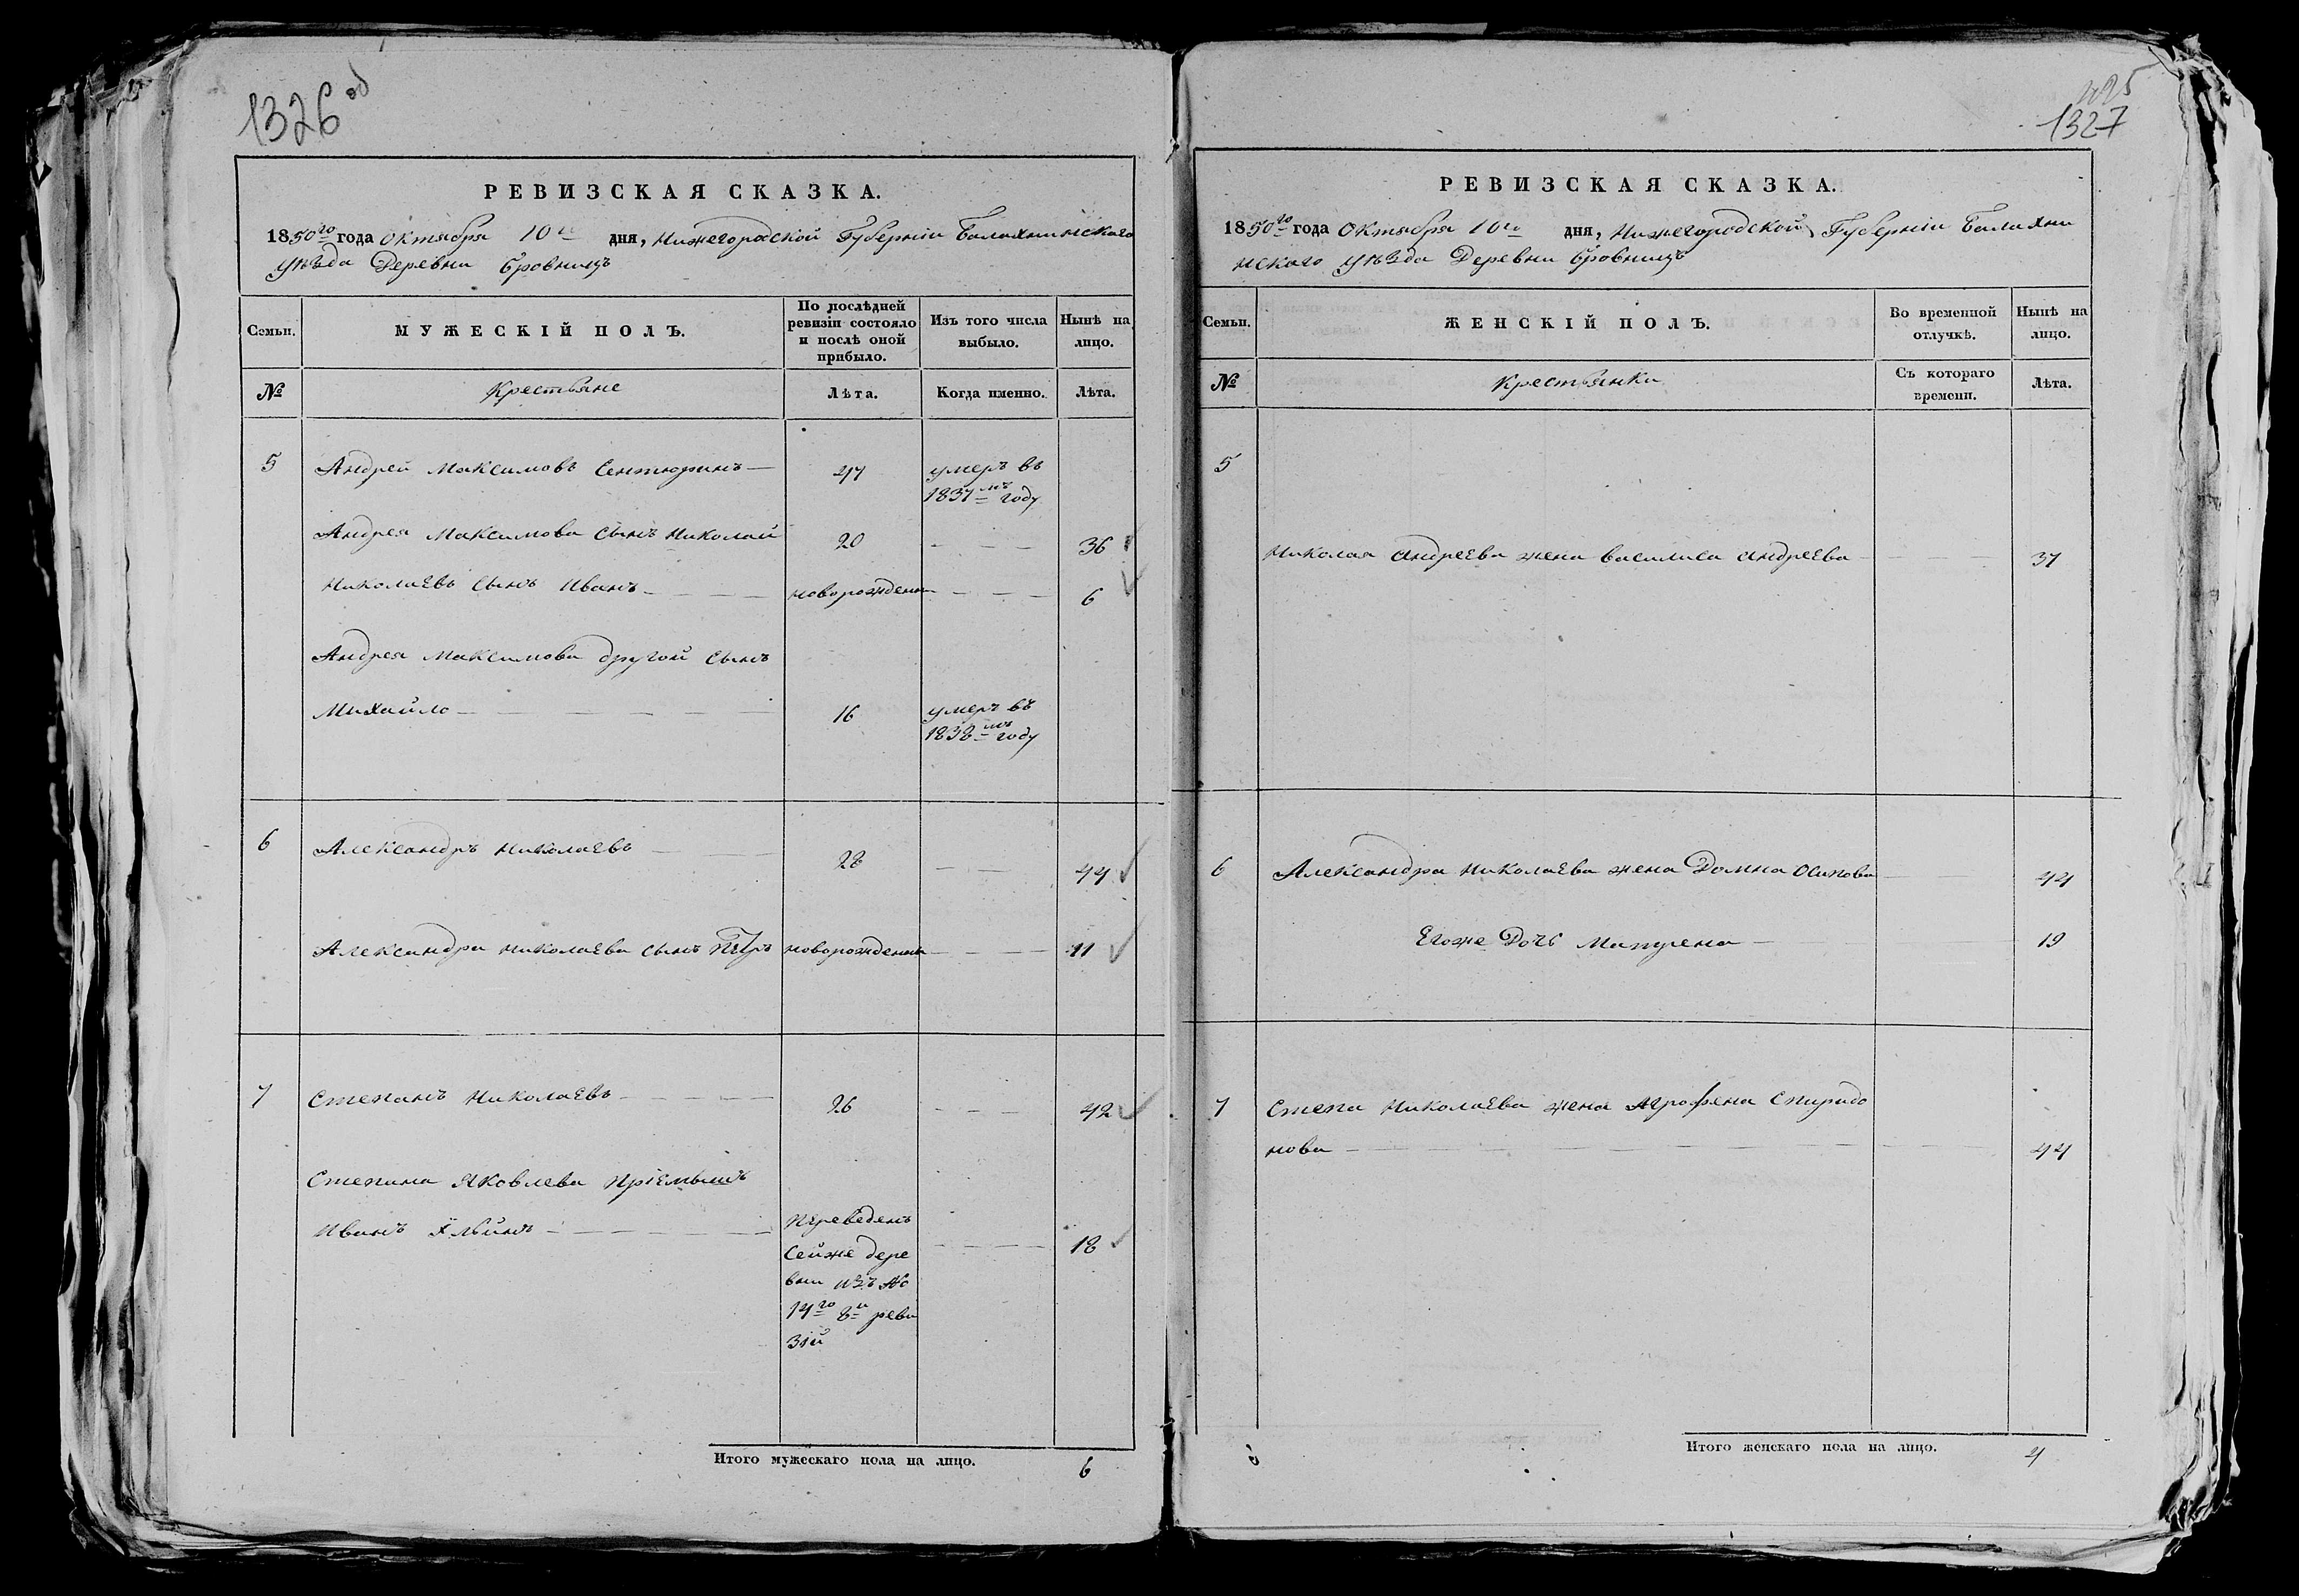 1326 об
РЕВИЗСКАЯ СКАЗКА.
1850го года Октября 10го дня, Нижегородской Губерніи Балахнинскаго
уѣзда Деревни Бровницъ
Семьи.
МУЖЕСКІЙ ПОЛЪ.
По послѣдней ревизіи состояло и послѣ оной прибыло.
Изъ того числа выбыло.
Нынѣ на лицо.
№
Крестьяне
Лѣта.
Когда именно.
Лѣта.
5 Андрей Максимовъ Сентюринъ — 47 умеръ въ
1837мъ году
Андрея Максимова сынъ Николай 20 — — — 36
Николаевъ сынъ Иванъ — — — новорожденъ — — — 6
Андрея Максимова другой сынъ
Михайло — — — 16 умеръ въ
1838мъ году
6 Александръ Николаевъ — — 28 — — 44
Александра Николаева сынъ Петръ новорожденны — — — 11
7 Степанъ Николаевъ — — — 26 — — — 42
Степана Яковлева пріемышъ
Иванъ Ильинъ — — — Переведенъ
сейже дере — — — 18
вни изъ №
14го 8й реви
зій
Итого мужескаго пола на лицо. 6
1327
РЕВИЗСКАЯ СКАЗКА.
1850го года Октября 10го дня, Нижегородской Губерніи Балахни
нскаго уѣзда Деревни Бровницъ
Семьи.
ЖЕНСКІЙ ПОЛЪ.
Во временной отлучкѣ.
Нынѣ на лицо.
№
Крестьянки
Съ котораго времени.
Лѣта.
5
Николая Андреева жена Василиса Андреева — — — 37
6 Александра Николаева жена Домна Осипова — 44
Егоже Дочь Матрена — 19
7 Степа Николаева жена Аграфена Спиридо
нова — — — 44
Итого женскаго пола на лицо. 4